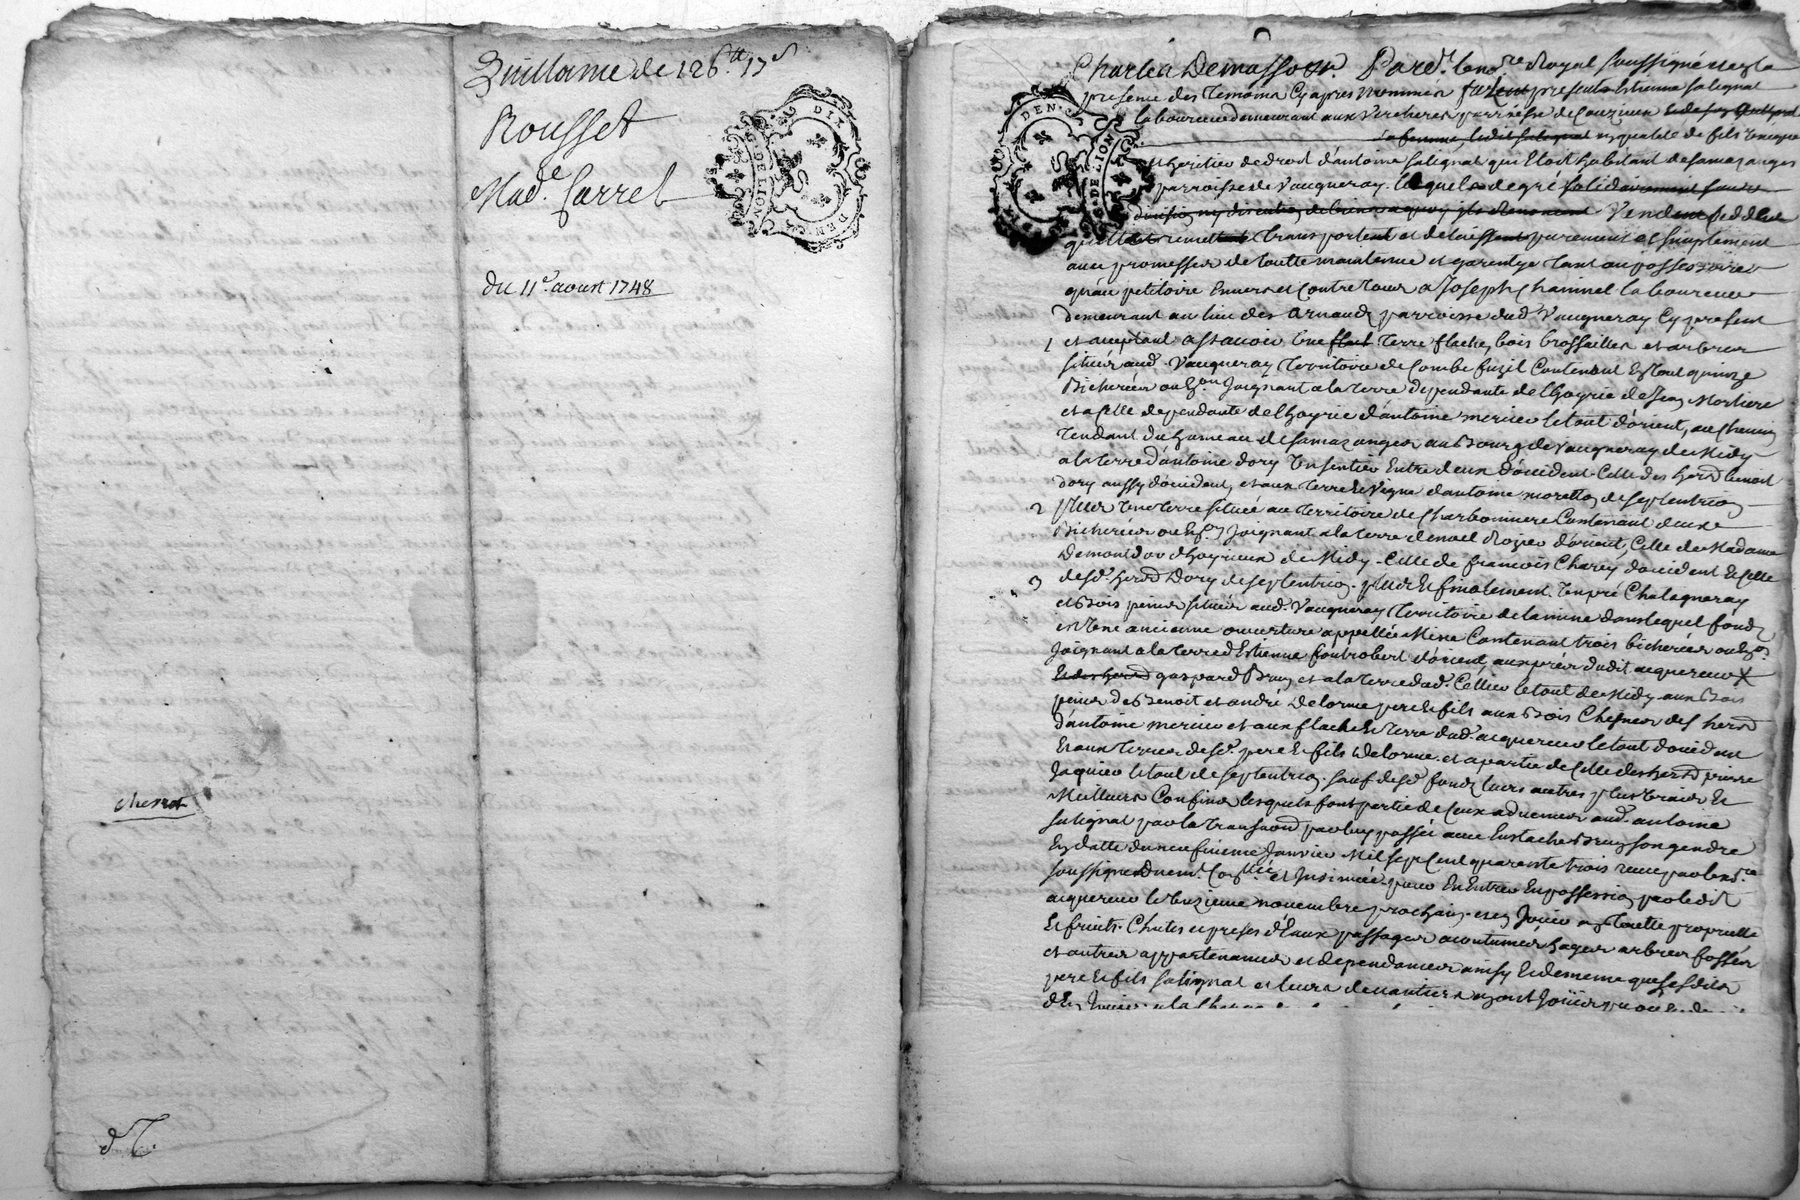 Quittance de 126.tt 17 s
Rousset
Mad.e Carret
du 11e. aoust 1748
chesrot
d T.
DIX DEN
G. DE LION
DEN
G. DE LION
Charles Demasson. Pard.t le no.re Royal soussigné et en la
presence des Temoins cy apres nommés furent presents Estienne salignat
laboureur demeurant aux Vercheres parroisse de Courzieu
la femme, ledit salignat en qualité de fils unique
et heritier de droit d'antoine salignat qui Etoit habitant de samazanges
parroisse de Vaugneray. lequel de gré solidairement sans
division ny discution de biens a quoy ils Renoncent Vendent cedde
quitte remettent transportent et delaissent purement et simplement
avec promesses de toutte maintenue et garentye tant au possessoire
qu'au petitoire Envers et Contre tous a Joseph Chainnel laboureur
demeurant au lieu des arnauds parroisse dud. Vaugneray Cy present
1 et acceptant a scavoir Une Terre flache, bois brossailles et arbres
situés aud. Vaugneray Territoire de Combe fuzil Contenant En tout quinze
Bicherées ou En.on Joignant a la terre dependante de l'hoyrie de Jean Mortiere
et a celle dependante de l'hoyrie d'antoine mercier le tout d'orient, au Chemin
tendant du hameau de samazanges au Bourg de Vaugneray de Midy
a la terre d'antoine dory Un sentier Entre deux d'occident Celle des her.s benoit
dory aussy d'occident, et aux terre et Vigne d'antoine moretton de septentrion
2 Plus Une terre située au territoire de Charbonniere Contenant deux
Bicherées ou En.on Joignant a la terre de noel Rozier d'orient, Celle de Madame
Demontdor d'hoyrieux de Midy. Celle de francois Charey d'occident Et celle
3 desd. her.s Dory de septentrion. plus Et finalement. Un pré Chalagneray
et Bois peines situés aud. Vaugneray Territoire de la mine dans lequel fonds
est Une ancienne ouverture appellée Mine Contenant trois bicherées ou En.on
Joignant a la terre d'Estienne fontrobert d'orient, aux prés dudit acquereur X
gaspard Bruy et a la terre dud. Cellier le tout de Midy aux Bois
peines de Benoit et andré Delorme pere et fils aux Bois Chesnes des her.s
d'antoine mercier et aux flache et terre dud. acquereur le tout d'occident
Et aux Terres desd. pere et fils Delorme et a partie de celle des her.s pierre
Jaquier le tout de septentrion. sauf desd. fonds leurs autres plus Vrais Et
Meilleurs Confins lesquels font partie de Ceux advenus aud. antoine
salignat par la transaction par luy passée avec Eustache Bruy son gendre
En datte du neufvieme Janvier Mil sept Cent quarente trois receu par le no.re
soussigné et Insinuée. pour En Entrer En possession par ledit
acquereur le Unzieme novembre prochain. et en Jouir en toutte proprieté
Et fruits. Chutes et prises d'Eaux passages acoutumés hayes arbres fossés
et autres appartenances et dependances ainsy Et de meme que lesdits
pere Et fils salignat et leurs devantiers en ont Jouïr